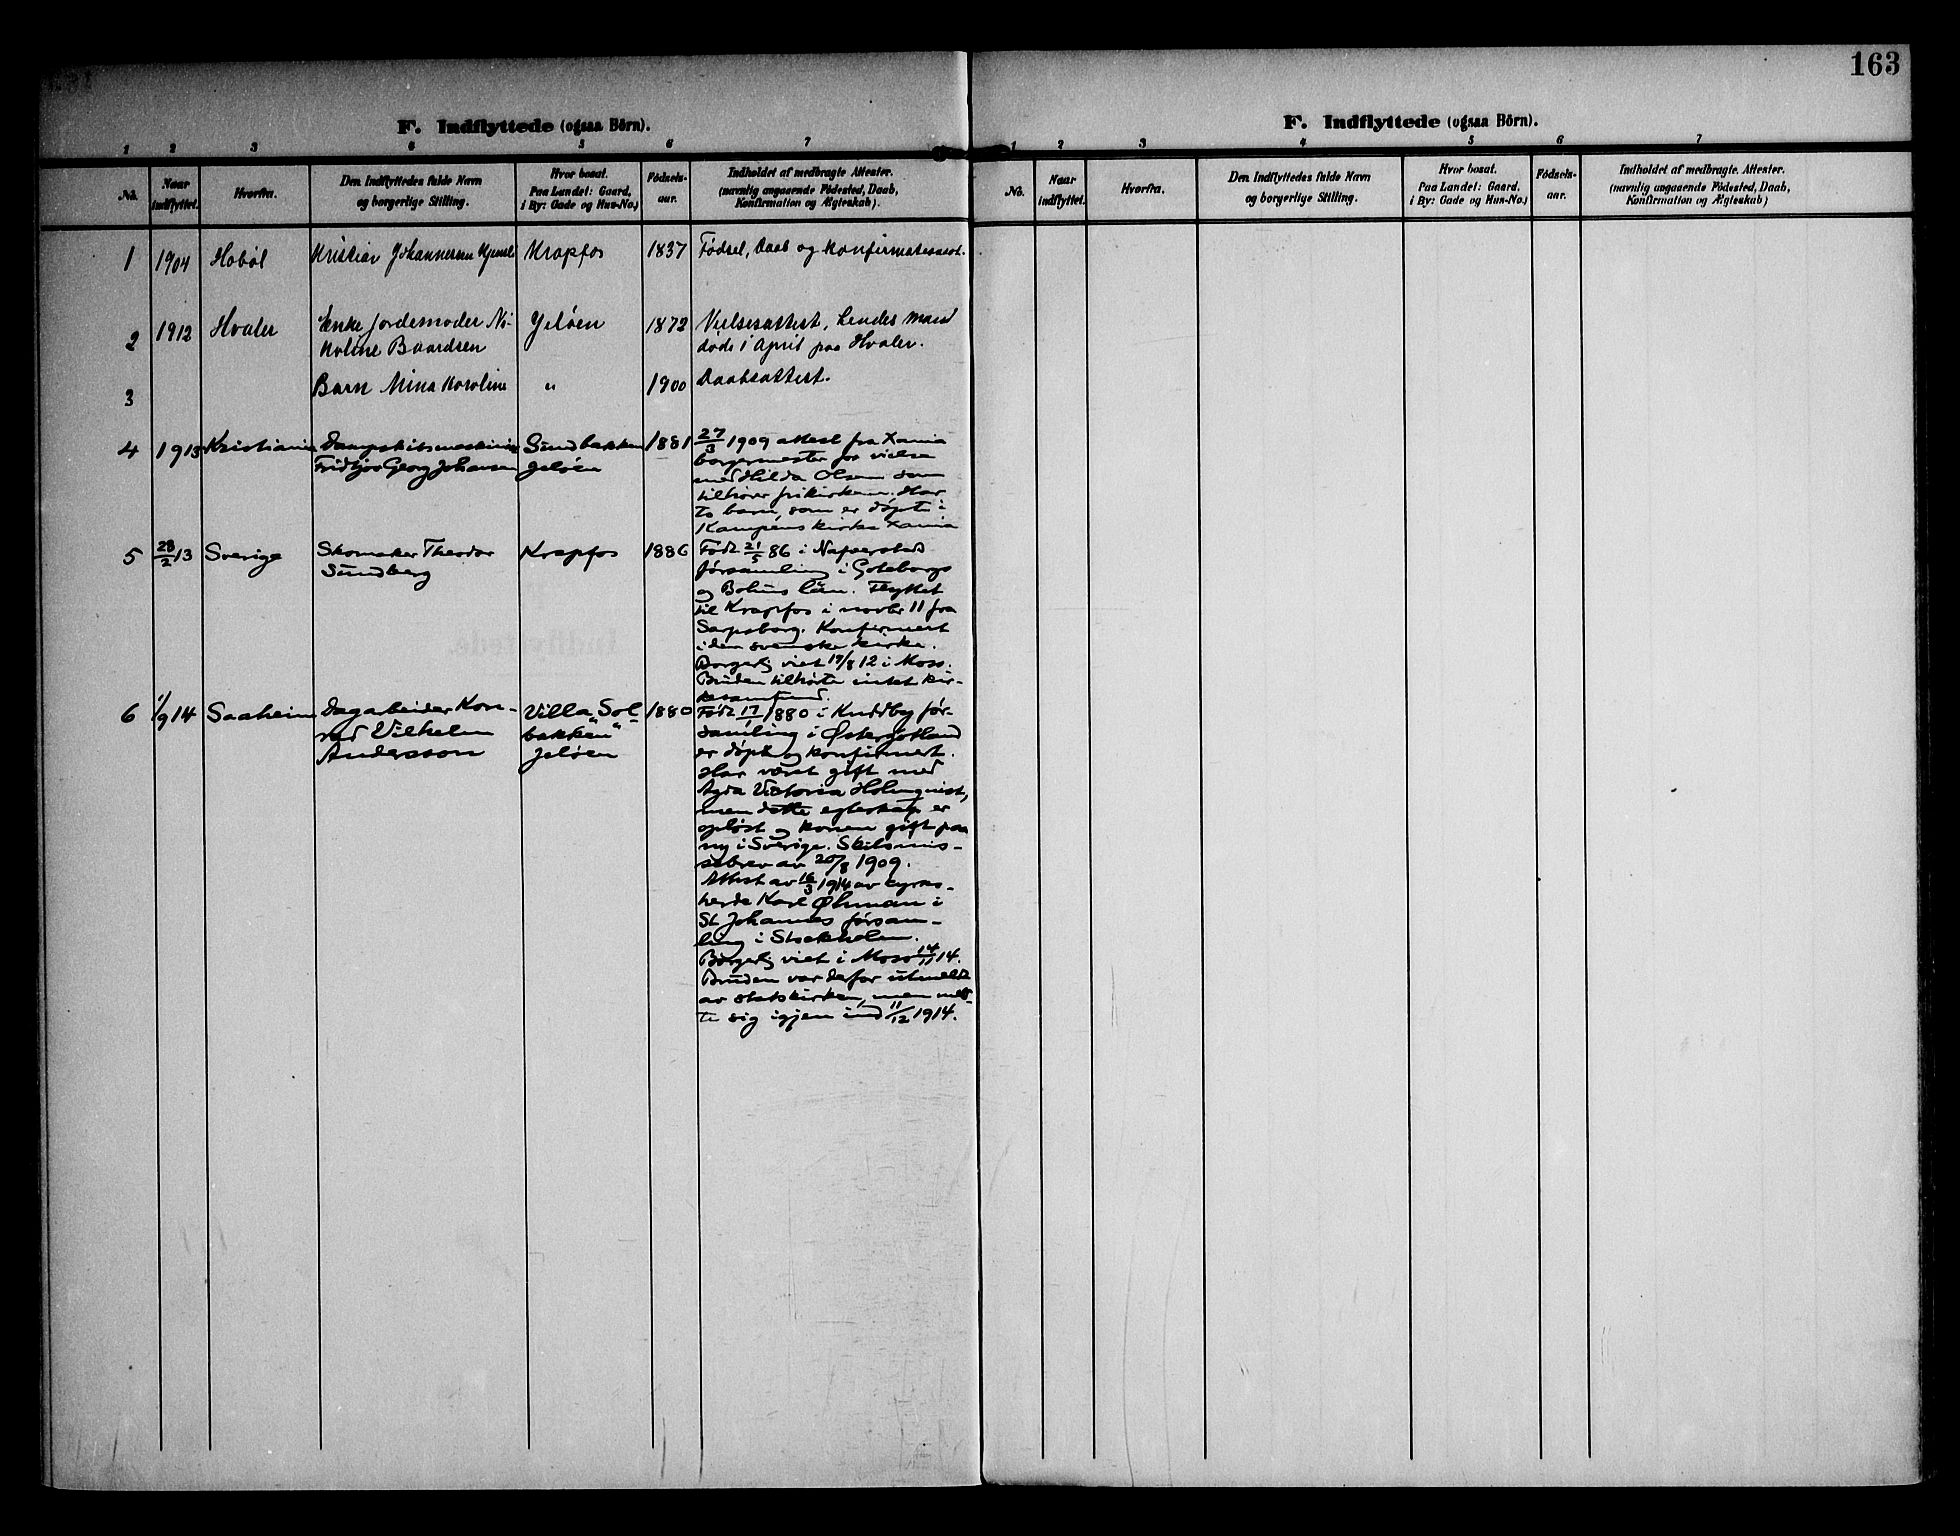 163
F. Indflyttede (ogsaa Börn).
1 2 3 4 5 6 7
No.
Naar indflyttet.
Hvorfra.
Den Indflyttedes fulde Navn
og borgerlige Stilling.
Hvor bosat.
Paa Landet: Gaard,
i By: Gade og Hus-No.)
Födsels-
aar.
Indholdet af medbragte Attester.
(navnlig angaaende Födested, Daab,
Konfirmation og Ægteskab).
1 1904 Hobøl Kristian Johannesen Krapfos 1837 Fødsel, Daab og Konfirmationsatt.
2 1912 Hvaler Enke Jordemoder Ni- Jeløen 1872 Vielsesattest, hendes mand
koline Baardsen døde i April paa Hvaler.
3 Barn Nina Karoline " 1900 Daabsattest.
4 1913 Kristiania Dampskibsmaskinist Sundbakken 1881 27/3 1909 attest fra Xania
Fridtjov Georg Johansen Jeløen borgermester for vielse
med Hilda Olsen som
tilhører frikirken. Har
to barn, som er døpt i
Kampens kirke Xania
5 28/2 13 Sverige Skomaker Theodor Krapfos 1886 Født 21/5 86 i Naverstads
Sundberg församling i Goteborgs
og Bohus län. Flyttet
til Krapfos i novbr 11 fra
Sarpsborg. Konfirmert
i den svenske kirke.
Borgerlig viet 17/8 12 i Moss.
Bruden tilhørte intet kir-
kesamfund.
6 1/9 14 Saaheim Dagarbeider Kon- Villa "Sol- 1880 Født 17/1 1880 i Kuddby för-
rad Vilhelm bakken" samling i Østergötland
Andersson Jeløen er døpt og konfirmert.
Har været gift med
Agda Victoria Holmqvist,
men dette egteskap er
opløst og konen gift paa
ny i Sverige. Skilsmis-
sebrev av 20/8 1909.
Attest av 16/3 1914 av kyrko-
herde Karl Øhman i
St Johannes församl-
ling i Stockholm.
Borgerlig viet i Moss 14/11 14.
Bruden var derfor utmeldt
av statskirken, men meld-
te sig igjen ind 11/12 1914.
F. Indflyttede (ogsaa Börn).
1 2 3 4 5 6 7
No.
Naar
indflyttet.
Hvorfra.
Den Indflyttedes fulde Navn
og borgerlige Stilling.
Hvor bosat.
Paa Landet: Gaard,
i By: Gade og Hus-No.)
Födsels-
aar.
Indholdet af medbragte Attester.
(navnlig angaaende Födested, Daab,
Konfirmation og Ægteskab)